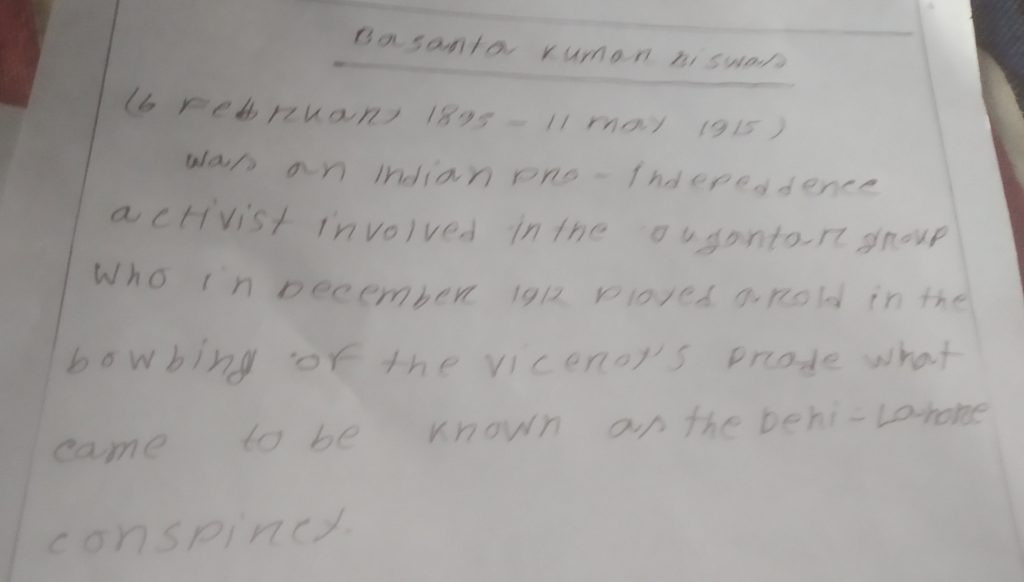 Basanta Kuman Biswas
(6 Februany 1895 - 11 may 1915)
was an Indian pro - Indepeddence
activist involved in the ougantar group
who in December 1912 ployed a rold in the
bowbing of the viceroy's prade what
came to be known as the Dehi - Lahore
conspincy.